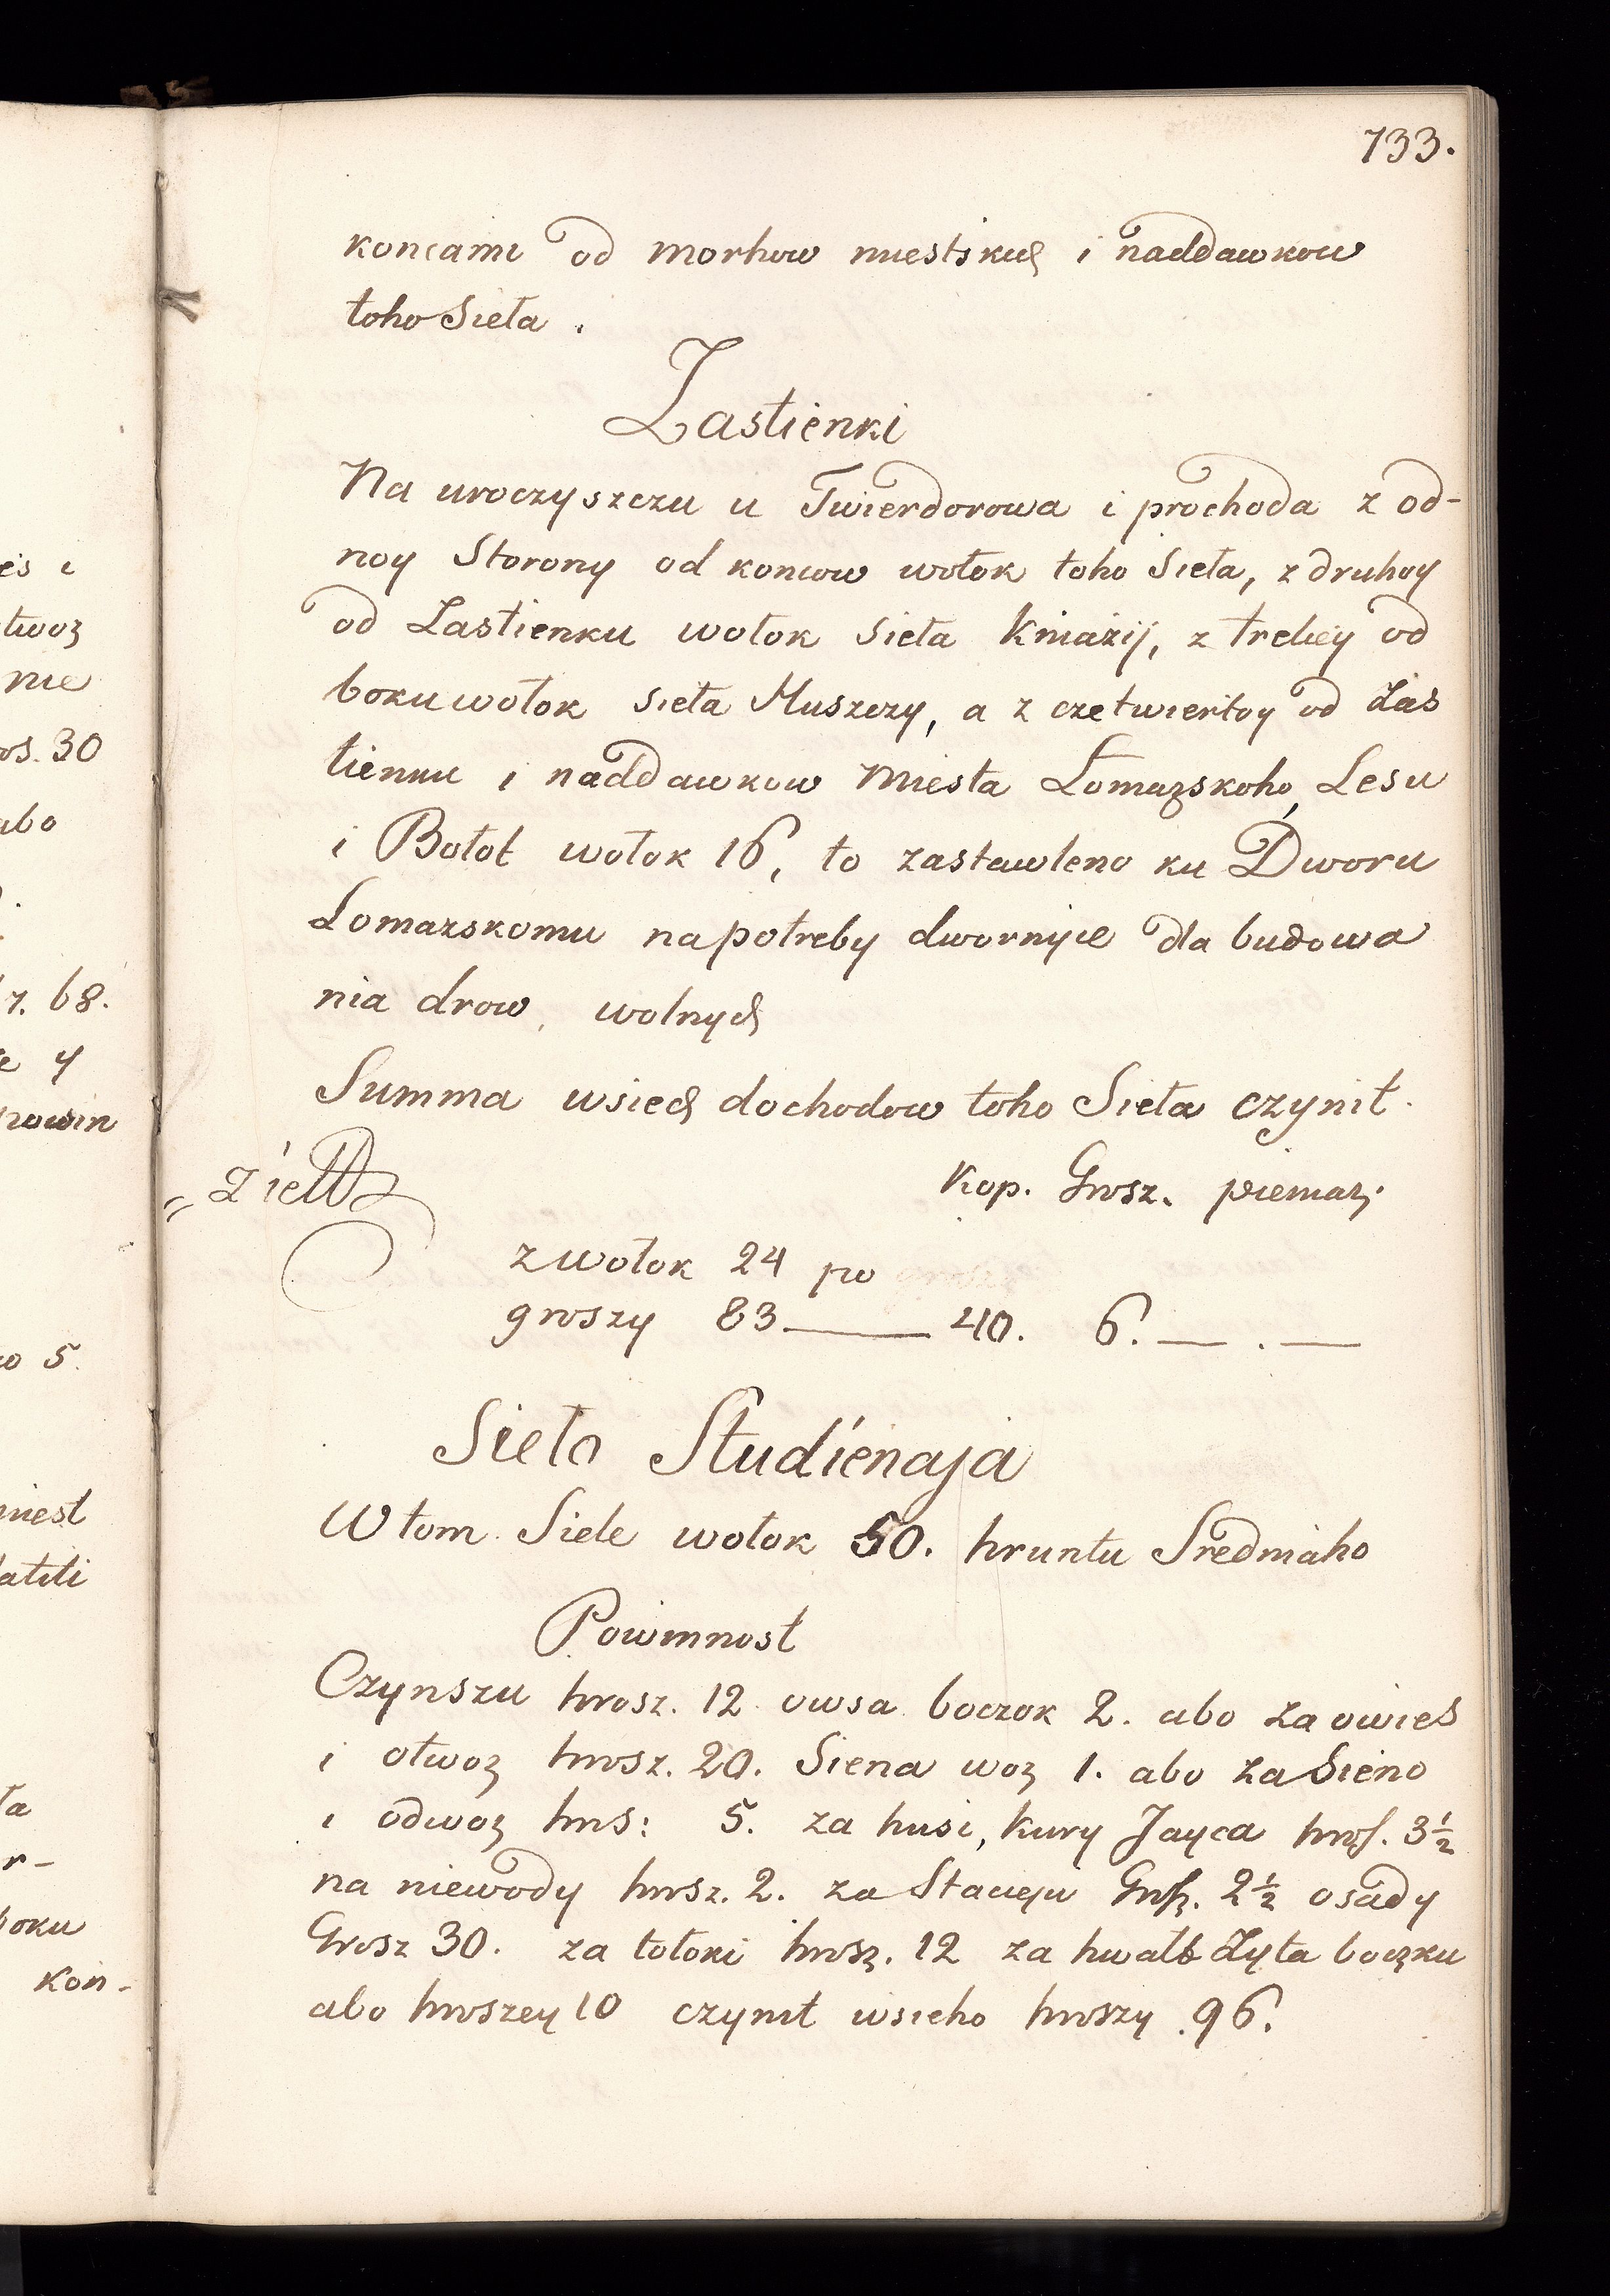 133.
koncami od morhow miestskich i naddawkow
toho Sieła.
Zastienki
Na uroczyszczu u Twierdorowa i prochoda z od-
noy Storony od koncow wołok toho Sieła, z druhoy
od Zastienku wołok Sieła Kniażij, z treliey od
boku wołok sieła Huszczy, a z czetwiertoy od Zas
tienku i naddawkow Miesta Łomazskoho, Lesu
i Bołot wołok 16, to zastawleno ku Dworu
Łomazskomu na potreby dwornyie dla budowa
nia drow, wolnych
Summa wsiech dochodow toho Sieła czynit.
Kop. Grosz. pieniaz;
z wołok 24 po
groszy 83 — 40. 6. — . —
Sieło Studienaja
W tom Siele wołok 50. hruntu Sredniaho
Powinnost
Czynszu hrosz. 12 owsa boczok 2. abo za owies
i otwoz hrosz. 20. Siena woz 1. abo za Sieno
i odwoz hros: 5. za husi, kury Jayca hros. 3½
na niewody hrosz. 2. za Stacyju Grosz. 2½ osady
Grosz 30. za tołoki hrosz. 12 za hwałt Żyta boczku
abo hroszey 10 czynit wsieho hroszy 96.
es i
twoz
nie
os. 30
abo
7. 68.
y
nowin
o 5.
miest
latili
ła
r-
boku
kon-